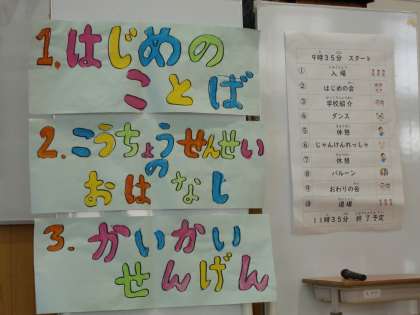 1.はじめの
ことば
2.こうちょうせんせい
の
おはなし
3.かいかい
せんげん
9時35分 スタート
① 入場
② はじめの会
③ 学校紹介
④ ダンス
⑤ 休憩
⑥ じゃんけんれっしゃ
⑦ 休憩
⑧ バルーン
⑨ おわりの会
⑩ 退場
11時35分 終了予定